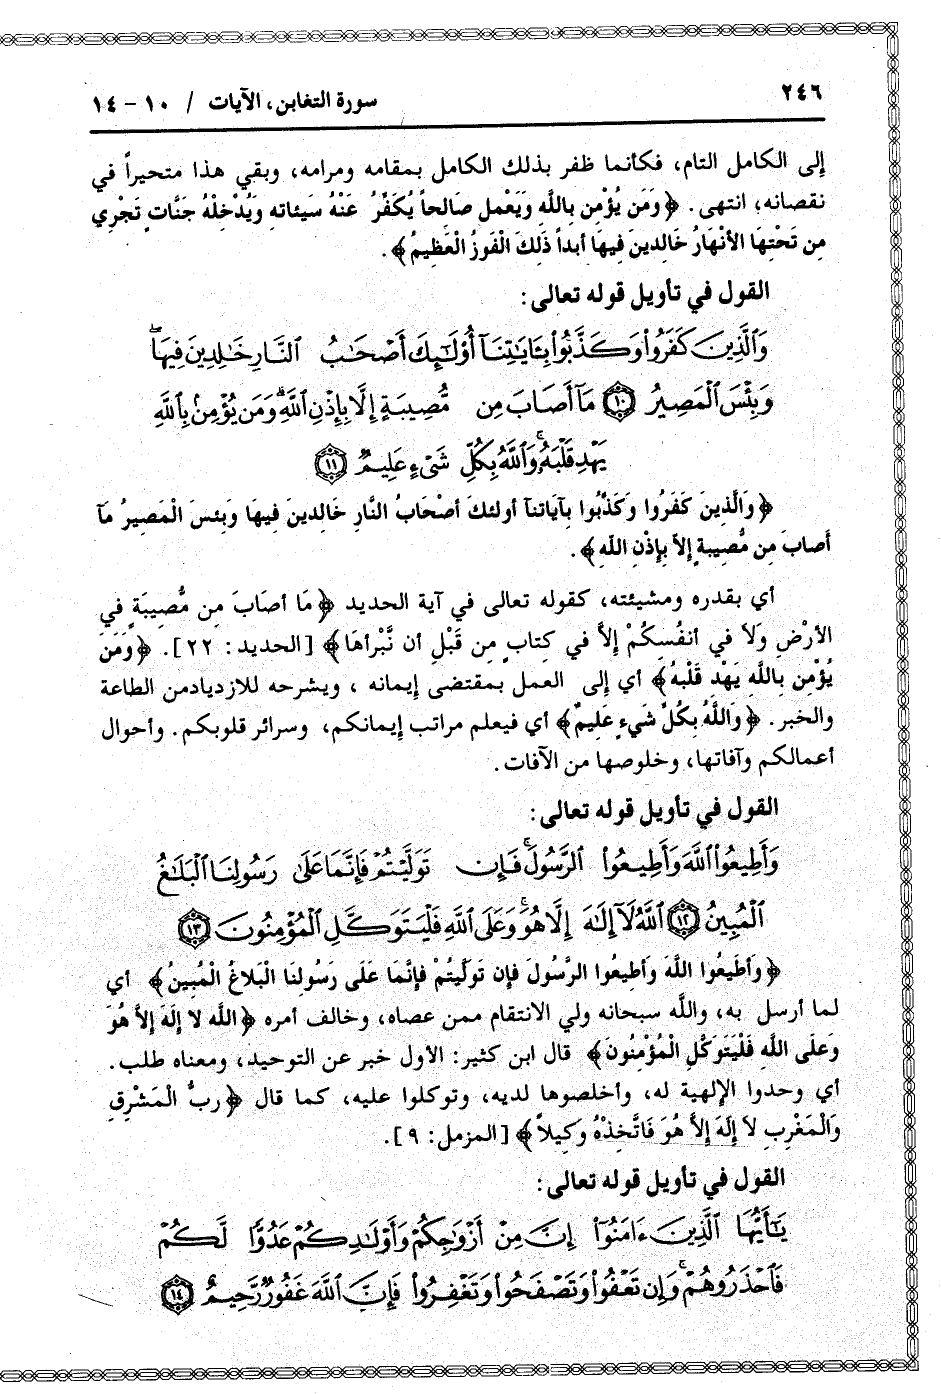 ٢٤٦
سورة التغابن، الآيات / ١٠ - ١٤
إلى الكامل التام، فكأنما ظفر بذلك الكامل بمقامه ومرامه، وبقي هذا متحيراً في
نقصانه؛ انتهى. ﴿وَمَن يُؤْمِن بِاللَّهِ وَيَعْمل صَالحاً يُكَفِّرْ عَنْهُ سَيئاته وَيُدْخِلْهُ جَنَّاتٍ تَجْرِي
مِن تَحْتِهَا الأَنْهَارُ خَالِدينَ فِيهَا أَبداً ذَلِكَ الْفَوزُ الْعَظِيمُ﴾.
القول في تأويل قوله تعالى:
وَٱلَّذِينَ كَفَرُوا۟ وَكَذَّبُوا۟ بِـَٔايَٰتِنَآ أُو۟لَٰٓئِكَ أَصْحَٰبُ ٱلنَّارِ خَٰلِدِينَ فِيهَا ۖ
وَبِئْسَ ٱلْمَصِيرُ ۝١٠ مَآ أَصَابَ مِن مُّصِيبَةٍ إِلَّا بِإِذْنِ ٱللَّهِ ۗ وَمَن يُؤْمِنۢ بِٱللَّهِ
يَهْدِ قَلْبَهُۥ ۚ وَٱللَّهُ بِكُلِّ شَىْءٍ عَلِيمٌ ۝١١
﴿وَالَّذِينَ كَفَرُوا وَكَذَّبُوا بِآيَاتنآ أولئكَ أصْحَابُ النَّارِ خَالِدينَ فِيهَا وَبئسَ الْمَصيرُ مَآ
أَصابَ مِن مُّصِيبةٍ إِلاَّ بِإِذْنِ اللَّهِ﴾.
أي بقدره ومشيئته، كقوله تعالى في آية الحديد ﴿مَا أصَابَ مِن مُّصِيبَةٍ في
الأرْضِ وَلاَ في أنفُسِكُمْ إِلاَّ في كِتابٍ مِن قَبْلِ أن نَّبْرأهَا﴾ [الحديد: ٢٢]. ﴿وَمَن
يُؤْمِن بِاللَّهِ يَهْدِ قَلْبهُ﴾ أي إلى العمل بمقتضى إيمانه ، ويشرحه للازديادمن الطاعة
والخير. ﴿وَاللَّهُ بِكُلِّ شَيءٍ عَلِيمٌ﴾ أي فيعلم مراتب إيمانكم، وسرائر قلوبكم. وأحوال
أعمالكم وآفاتها، وخلوصها من الآفات.
القول في تأويل قوله تعالى:
وَأَطِيعُوا۟ ٱللَّهَ وَأَطِيعُوا۟ ٱلرَّسُولَ ۚ فَإِن تَوَلَّيْتُمْ فَإِنَّمَا عَلَىٰ رَسُولِنَا ٱلْبَلَٰغُ
ٱلْمُبِينُ ۝١٢ ٱللَّهُ لَآ إِلَٰهَ إِلَّا هُوَ ۚ وَعَلَى ٱللَّهِ فَلْيَتَوَكَّلِ ٱلْمُؤْمِنُونَ ۝١٣
﴿وَأطِيعُوا اللَّهَ وَأطِيعُوا الرَّسُولَ فَإِن تَوَلَّيتُمْ فإنَّمَا عَلَى رَسُولِنَا الْبَلاغُ الْمُبِينُ﴾ أي
لما أرسل به، واللَّه سبحانه ولي الانتقام ممن عصاه، وخالف أمره ﴿اللَّه لا إلَهَ إلاَّ هُوَ
وَعَلَى اللَّهِ فَلْيَتَوكَّلِ الْمُؤْمِنُونَ﴾ قال ابن كثير: الأول خبر عن التوحيد، ومعناه طلب.
أي وحدوا الإلهية له، وأخلصوها لديه، وتوكلوا عليه، كما قال ﴿ربُّ الْمَشْرِقِ
وَالْمَغْرِبِ لاَ إِلَهَ إلاَّ هُوَ فَاتَّخِذْهُ وَكِيلاً﴾ [المزمل: ٩].
القول في تأويل قوله تعالى:
يَٰٓأَيُّهَا ٱلَّذِينَ ءَامَنُوٓا۟ إِنَّ مِنْ أَزْوَٰجِكُمْ وَأَوْلَٰدِكُمْ عَدُوًّا لَّكُمْ
فَٱحْذَرُوهُمْ ۚ وَإِن تَعْفُوا۟ وَتَصْفَحُوا۟ وَتَغْفِرُوا۟ فَإِنَّ ٱللَّهَ غَفُورٌ رَّحِيمٌ ۝١٤